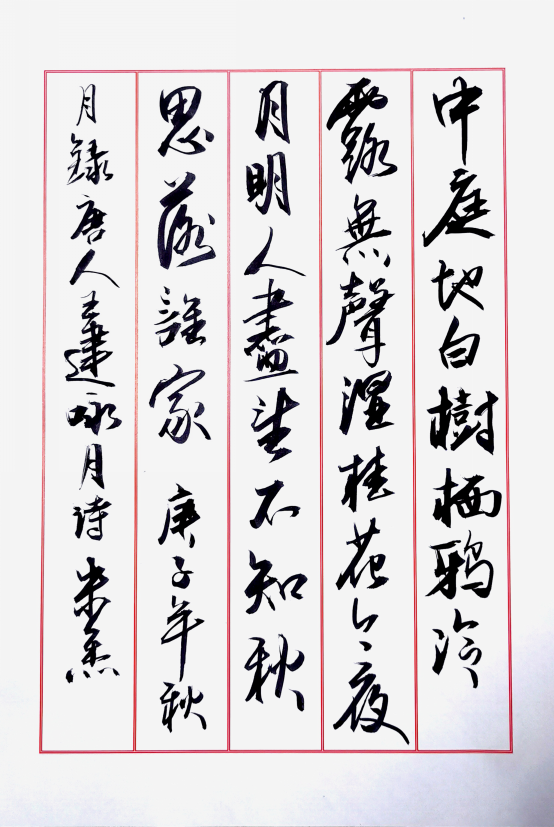 中庭地白樹栖鸦冷
露無聲濕桂花今夜
月明人盡望不知秋
思落誰家 庚子年秋
月録唐人王建咏月诗米焘